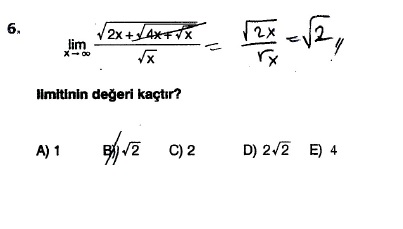 6. lim x→∞ √(2x + √(4x + √x)) / √x = √2x / √x = √2
limitinin değeri kaçtır?
A) 1 B) √2 C) 2 D) 2√2 E) 4